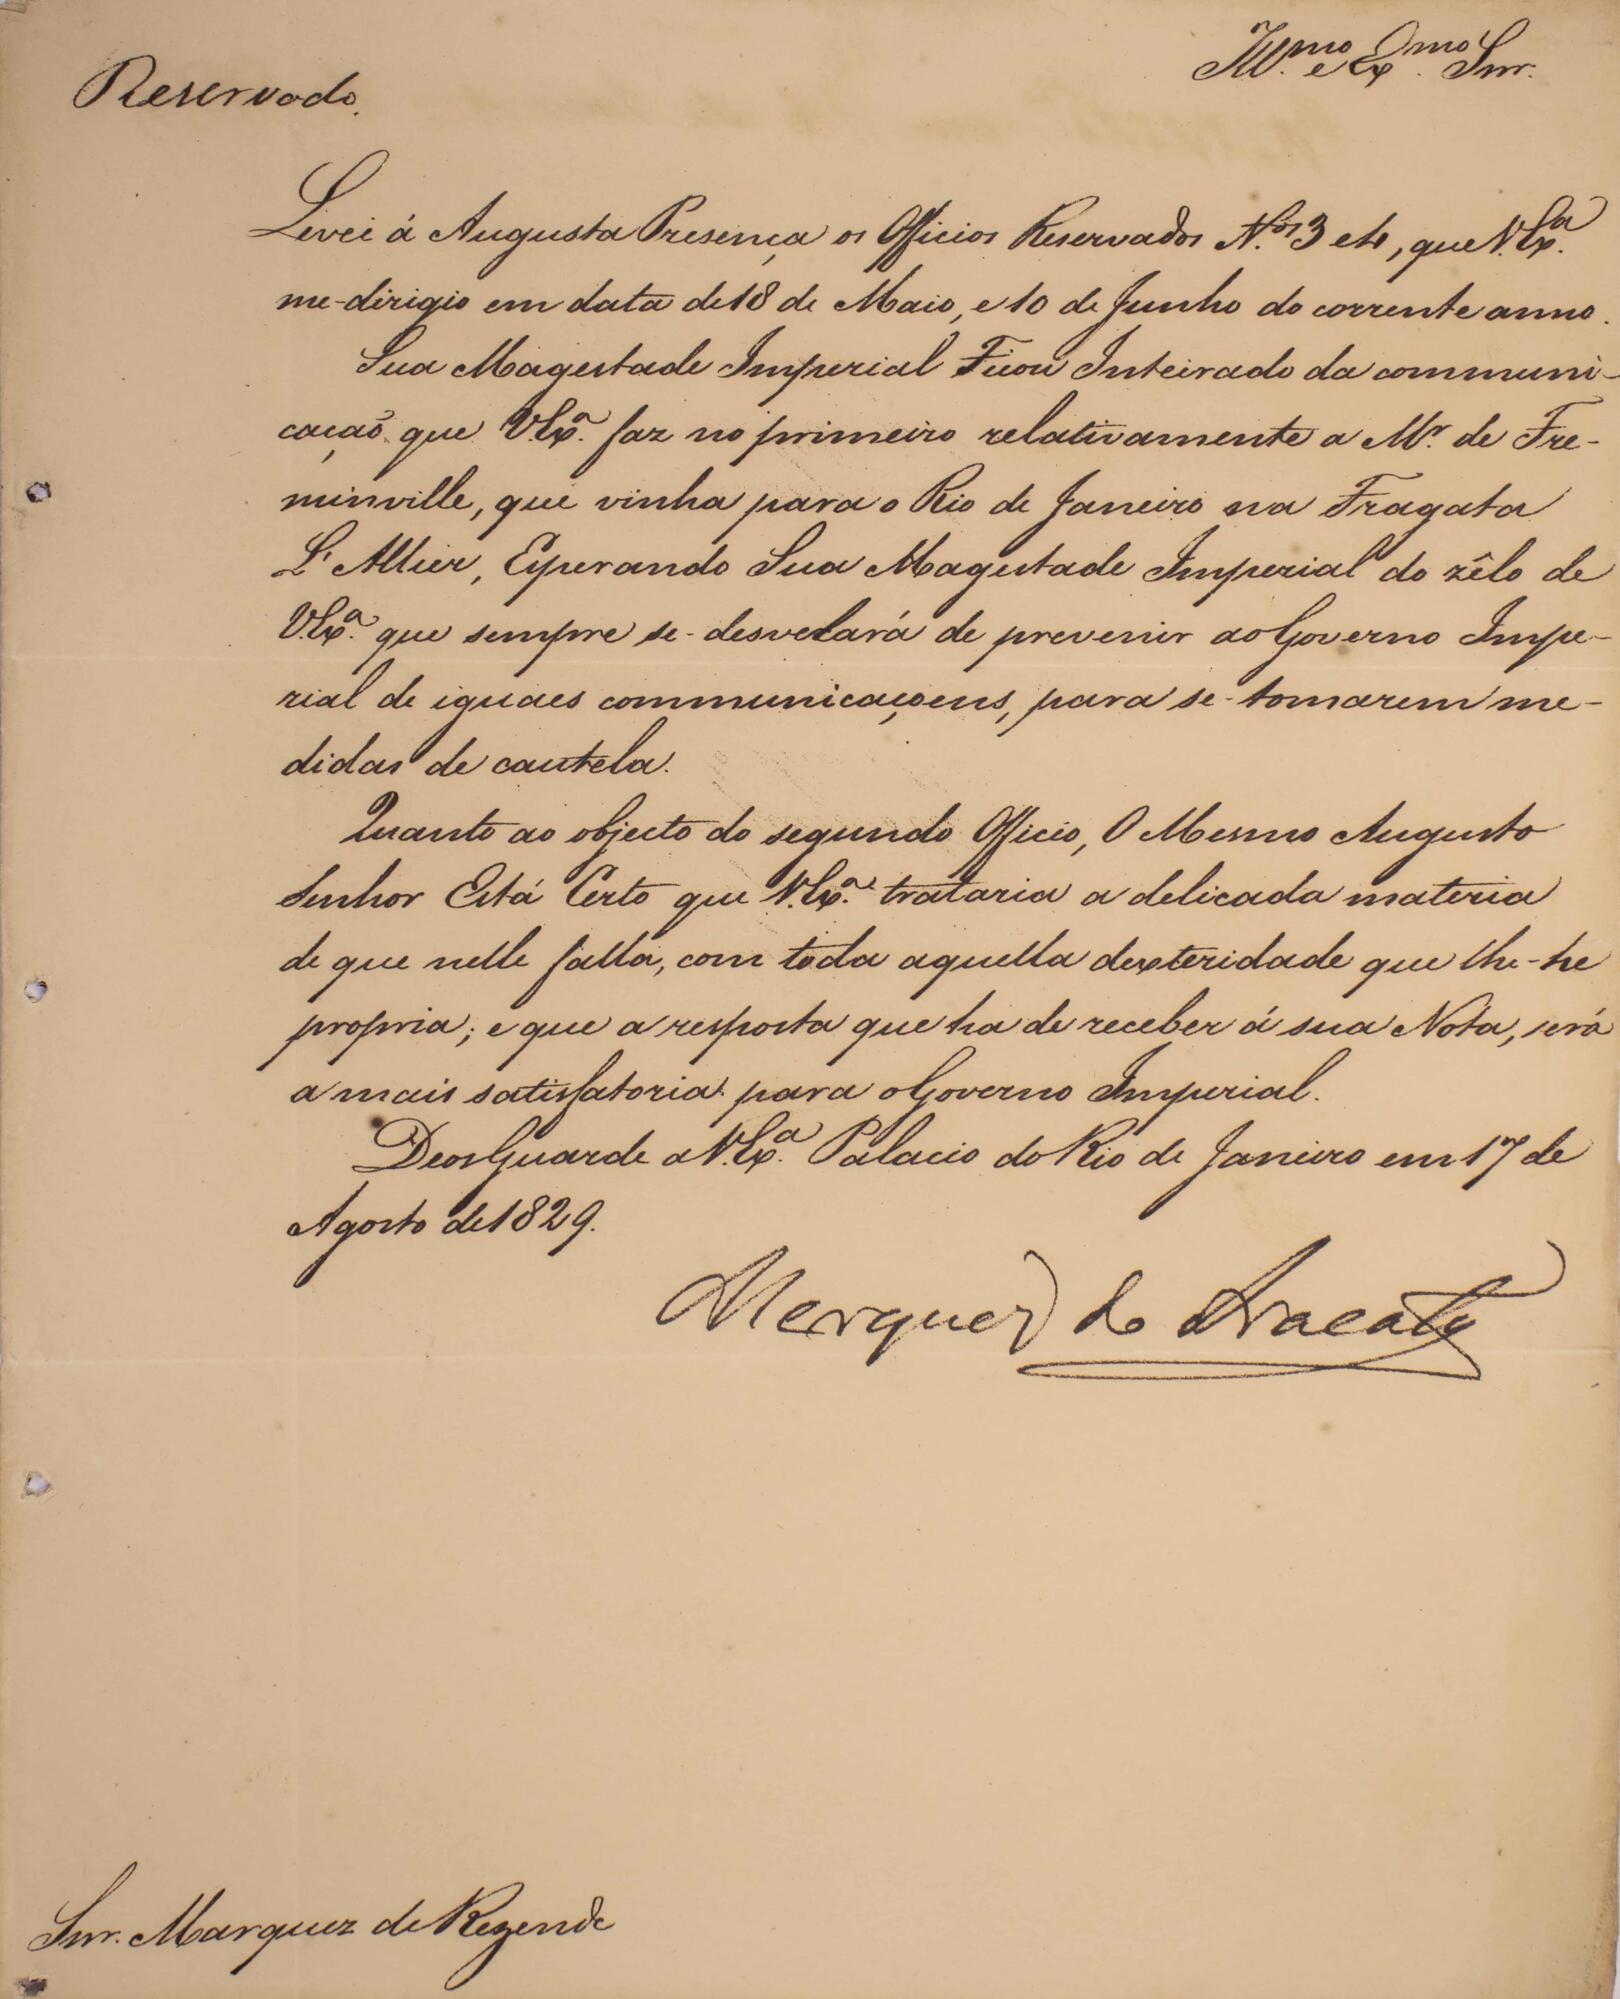 Reservado.
Ill.mo e Ex.mo Snr.
Levei á Augusta Presença os Officios Reservados N.os 3 e 4, que V. Ex.a
me-dirigio em data de 18 de Maio, e 10 de Junho do corrente anno.
Sua Magestade Imperial Ficou Inteirado da communi-
cação que V. Ex.a faz no primeiro relativamente a Mr. de Fre-
minville, que vinha para o Rio de Janeiro na Fragata
L'Allier, Esperando Sua Magestade Imperial do zêlo de
V. Ex.a que sempre se-desvelará de prevenir ao Governo Impe-
rial de iguaes communicaçoens, para se-tomarem me-
didas de cautela.
Quanto ao objecto do segundo Officio, O Mesmo Augusto
Senhor Está Certo que V. Ex.a trataria a delicada materia
de que nelle falla, com toda aquella dexteridade que lhe-he
propria; e que a resposta que ha de receber á sua Nota, será
a mais satisfatoria para o Governo Imperial.
Deos Guarde a V. Ex.a Palacio do Rio de Janeiro em 17 de
Agosto de 1829.
Marquez de Aracaty
Snr. Marquez de Rezende